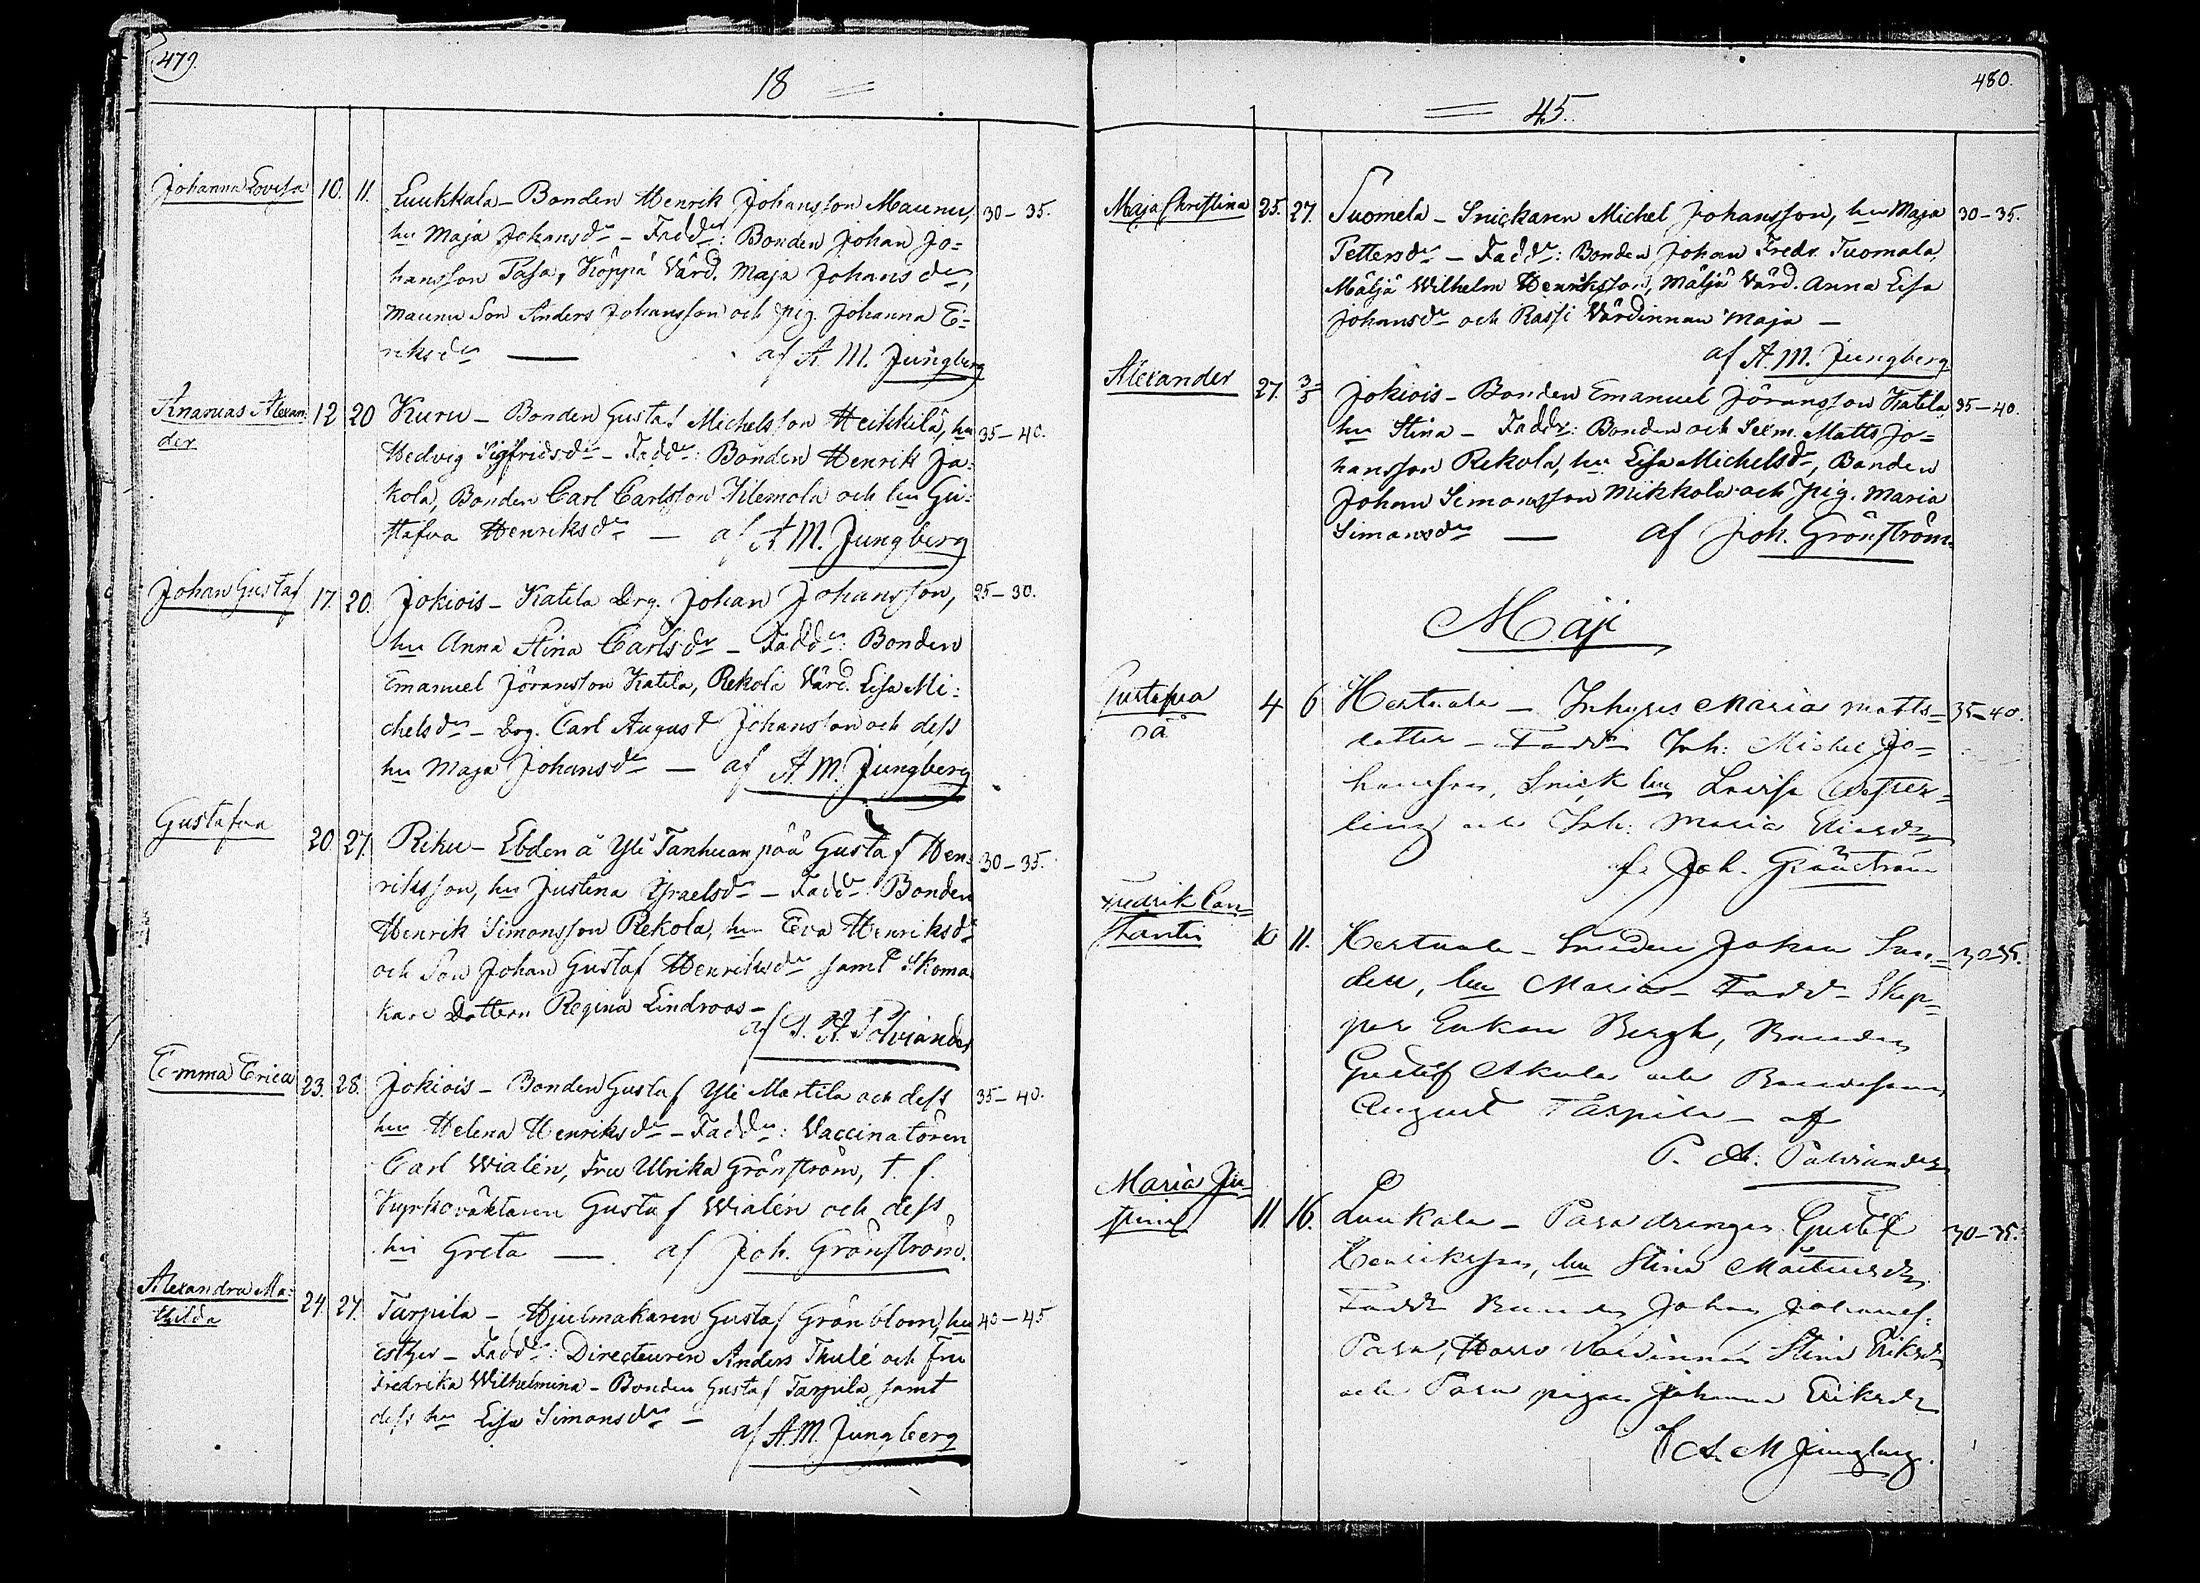 479.
18 =
Johanna Lovisa 10. 11. Luukkala – Bonden Henrik Johansson Maunu, 30–35.
hu Maja Johansdr – Faddr: Bonden Johan Jo=
hansson Pasa, Köppä Värd. Maja Johansdr,
Maunu Son Anders Johansson och pig. Johanna E=
riksdr — af A. M. Jungberg
Ananias Alexan- 12 20 Kuru – Bonden Gustaf Michelsson Heikkilä, hu 35–40.
der
Hedvig Sigfridsdr – Faddr: Bonden Henrik Ja=
kola, Bonden Carl Carlsson Jilemola och hu Gu=
stafva Henriksdr — af A M. Jungberg
Johan Gustaf 17. 20. Jokiois – Katila Drg. Johan Johansson, 25–30.
hu Anna Stina Carlsdr – Faddr: Bonden
Emanuel Jöransson Katila, Rekola Värd. Lisa Mi=
chelsdr – Drg. Carl August Johansson och dess
hu Maja Johansdr — af A. M. Jungberg
Gustafva 20. 27. Riku – Ebden å Yli Tanhuanpää Gustaf Hen= 30–35.
riksson, hu Justina Israelsdr – Faddr: Bonden
Henrik Simonsson Rekola, hu Eva Henriksdr
och Son Johan Gustaf Henriksdr samt Skoma
kare Dottern Regina Lindroos –
af P. A. Polviander
Emma Erica 23. 28. Jokiois – Bonden Gustaf Yli Martila och dess 35–40.
hu Helena Henriksdr – Faddr: Vaccinatören
Carl Wialén, Fru Ulrika Grönström, t. f.
Kyrkoväktaren Gustaf Wialén och dess
hu Greta — af Joh. Grönström.
Alexandra Ma= 24. 27. Tarpila – Hjulmakaren Gustaf Grönblom, hu 40–45
thilda
Esther – Faddr: Directeuren Anders Thulé och Fru
Fredrika Wilhelmina – Bonden Gustaf Tarpila samt
dess hu Lisa Simonsdr –
af A. M. Jungberg
480.
= 45.
Maja Christina 25. 27. Tuomela – Snickaren Michel Johansson, hu Maja 30–35.
Pettersdr – Faddr: Bonden Johan Fredr. Tuomala,
Mäljä Wilhelm Henriksson, Mäljä Värd. Anna Lisa
Johansdr och Rassi Värdinnan Maja –
af A. M. Jungberg
Alexander 27. 3/5 Jokiois – Bonden Emanuel Jöransson Katila 35–40.
hu Stina – Faddr: Bonden och Sexm. Matts Jo=
hansson Rekola, hu Lisa Michelsdr, Bonden
Johan Simonsson Mikkola och pig. Maria
Simonsdr — af Joh. Grönström.
Maji
Gustafva 4 6 Hertuala – Inhyses Maria Matts= 35–40.
oä
dotter – Faddr Inh: Michel Jo=
hansson, Snick hu Lovisa Wester=
ling och Inh: Maria Eliasdr
af Joh. Grönström
Fredrik Con=
stantin 10 11. Kertuala – Smeden Johan Lin= 30–35.
den, hu Maria – Faddr Skep=
par Bergh, Bonden
Gustaf Akola och Bondesonen
August Tarpila – af
P. A. Polviander
Maria Ju=
stina 11 16. Luukala – Pasa drengen Gustaf 30–35.
Henriksson, hu Stina
Faddr Bonden Johan Johans=
Pasa, Värdinnan Stina Eriksdr
och Pasa pigan Johanna Eriksdr
af A. M Jungberg.